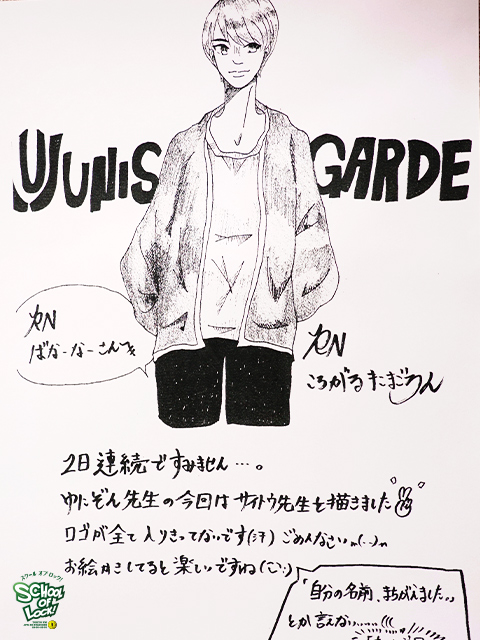 UUNIS GARDE
RN
ばなーなーさんです
RN
ころがるたまごうん
2日連続ですみません…。
ゆにぞん先生の今回はサイトウ先生を描きました
ロゴが全て入りきってないです(汗) ごめんなさいm(..)m
お絵かきしてると楽しいですね(^^)
「自分の名前、まちがえました。」
とか言えない……(((
スクール オブ ロック!
SCHOOL OF LOCK!